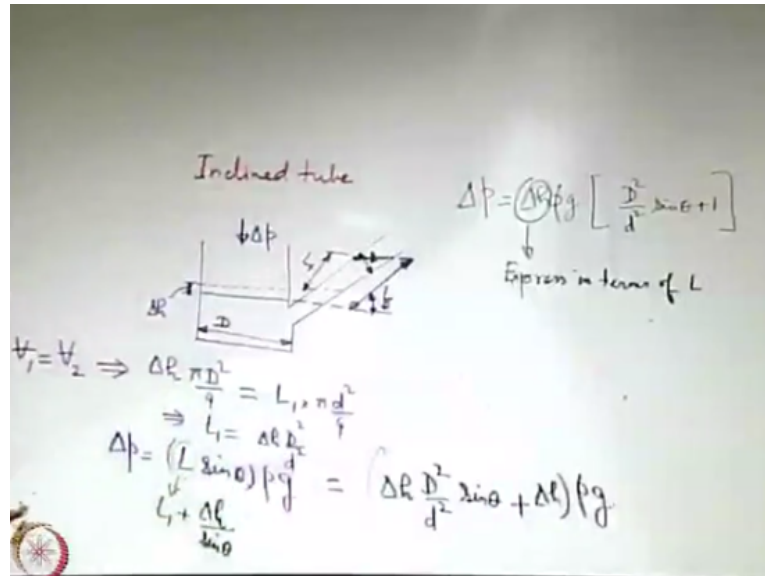 Inclined tube
Δp = Δh ρg [ D²/d² sinθ + 1 ]
Express in terms of L
↓Δp
L₁
Δh
D
V₁ = V₂ ⇒ Δh πD²/4 = L₁ × πd²/4
⇒ L₁ = Δh D²/d²
Δp = (L sinθ) ρg = (Δh D²/d² sinθ + Δh) ρg
L₁ + Δh/sinθ